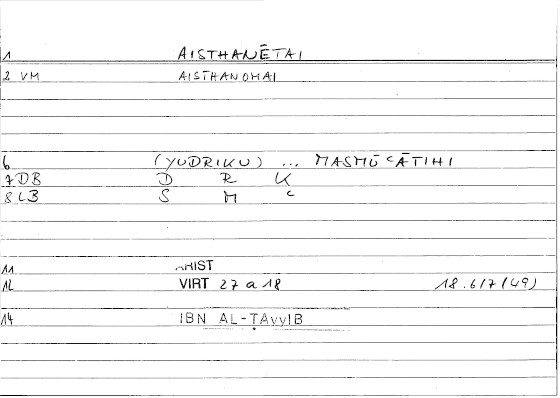 1 AISTHANĒTAI
2 VM AISTHANOMAI
6 (YUDRIKU) ... MASMŪʿĀTIHI
7 DB D R K
8 LB S M ʿ
11 ARIST
12 VIRT 27 a 18 18.6/7 (49)
14 IBN AL-ṬAyyIB